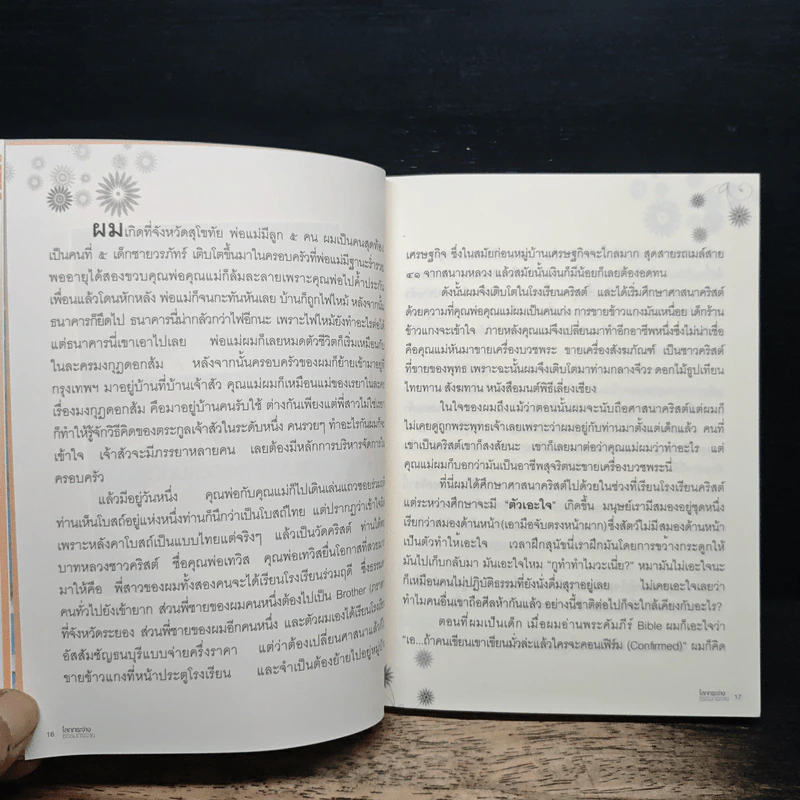 ผมเกิดที่จังหวัดสุโขทัย พ่อแม่มีลูก ๕ คน ผมเป็นคนสุดท้อง
เป็นคนที่ ๕ เด็กชายวรภัทร์ เติบโตขึ้นมาในครอบครัวที่พ่อแม่มีฐานะร่ำรวย
พออายุได้สองขวบคุณพ่อคุณแม่ก็ล้มละลายเพราะคุณพ่อไปค้ำประกัน
เพื่อนแล้วโดนหักหลัง พ่อแม่ก็จนกะทันหันเลย บ้านก็ถูกไฟไหม้ หลังจากนั้น
ธนาคารก็ยึดไป ธนาคารนี่น่ากลัวกว่าไฟอีกนะ เพราะไฟไหม้ยังทำอะไรต่อได้
แต่ธนาคารนี่เขาเอาไปเลย พ่อแม่ผมก็เลยหมดตัวชีวิตก็เริ่มเหมือนกับ
ในละครมงกุฎดอกส้ม หลังจากนั้นครอบครัวของผมก็ย้ายเข้ามาอยู่ที่
กรุงเทพฯ มาอยู่บ้านที่บ้านเจ้าสัว คุณแม่ผมก็เหมือนแม่ของเรยาในละคร
เรื่องมงกุฎดอกส้ม คือมาอยู่บ้านคนรับใช้ ต่างกันเพียงแต่พี่สาวไม่ใช่เรยา
ก็ทำให้รู้จักวิธีคิดของตระกูลเจ้าสัวในระดับหนึ่ง คนรวยๆ ทำอะไรกันผมก็จะ
เข้าใจ เจ้าสัวจะมีภรรยาหลายคน เลยต้องมีหลักการบริหารจัดการใน
ครอบครัว
แล้วมีอยู่วันหนึ่ง คุณพ่อกับคุณแม่ก็ไปเดินเล่นแถวซอยร่วมฤดี
ท่านเห็นโบสถ์อยู่แห่งหนึ่งท่านก็นึกว่าเป็นโบสถ์ไทย แต่ปรากฏว่าเข้าใจผิด
เพราะหลังคาโบสถ์เป็นแบบไทยแต่จริงๆ แล้วเป็นวัดคริสต์ ท่านได้พบ
บาทหลวงชาวคริสต์ ชื่อคุณพ่อเทวิส คุณพ่อเทวิสยื่นโอกาสที่สวยงาม
มาให้คือ พี่สาวของผมทั้งสองคนจะได้เรียนโรงเรียนร่วมฤดี ซึ่งธรรมดา
คนทั่วไปยังเข้ายาก ส่วนพี่ชายของผมคนหนึ่งต้องไปเป็น Brother
ที่จังหวัดระยอง ส่วนพี่ชายของผมอีกคนหนึ่ง และตัวผมเองได้เรียนโรงเรียน
อัสสัมชัญธนบุรีแบบจ่ายครึ่งราคา แต่ว่าต้องเปลี่ยนศาสนาแล้วก็ไป
ขายข้าวแกงที่หน้าประตูโรงเรียน และจำเป็นต้องย้ายไปอยู่หมู่บ้าน
16 โลกกระจ่าง
เศรษฐกิจ ซึ่งในสมัยก่อนหมู่บ้านเศรษฐกิจจะไกลมาก สุดสายรถเมล์สาย
๔๑ จากสนามหลวง แล้วสมัยนั้นเงินก็มีน้อยก็เลยต้องอดทน
ดังนั้นผมจึงเติบโตในโรงเรียนคริสต์ และได้เริ่มศึกษาศาสนาคริสต์
ด้วยความที่คุณพ่อคุณแม่ผมเป็นคนเก่ง การขายข้าวแกงมันเหนื่อย เด็กร้าน
ข้าวแกงจะเข้าใจ ภายหลังคุณแม่จึงเปลี่ยนมาทำอีกอาชีพหนึ่งซึ่งไม่น่าเชื่อ
คือคุณแม่หันมาขายเครื่องบวชพระ ขายเครื่องสังฆภัณฑ์ เป็นชาวคริสต์
ที่ขายของพุทธ เพราะฉะนั้นผมจึงเติบโตมาท่ามกลางจีวร ดอกไม้ธูปเทียน
ไทยทาน สังฆทาน หนังสือมนต์พิธีเสี่ยงเชียง
ในใจของผมถึงแม้ว่าตอนนั้นผมจะนับถือศาสนาคริสต์แต่ผมก็
ไม่เคยดูถูกพระพุทธเจ้าเลยเพราะว่าผมอยู่กับท่านมาตั้งแต่เด็กแล้ว คนที่
เขาเป็นคริสต์เขาก็สงสัยนะ เขาก็เลยมาต่อว่าคุณแม่ผมว่าทำอะไร แต่
คุณแม่ผมก็บอกว่ามันเป็นอาชีพสุจริตนะขายเครื่องบวชพระนี่
ที่นี่ผมได้ศึกษาศาสนาคริสต์ไปด้วยในช่วงที่เรียนโรงเรียนคริสต์
แต่ระหว่างศึกษาจะมี "ตัวเอะใจ" เกิดขึ้น มนุษย์เรามีสมองอยู่ชุดหนึ่ง
เรียกว่าสมองด้านหน้า(เอามือจับตรงหน้าผาก)ซึ่งสัตว์ไม่มีสมองด้านหน้า
เป็นตัวทำให้เอะใจ เวลาฝึกสุนัขนี่เราฝึกมันโดยการขว้างกระดูกให้
มันไปเก็บกลับมา มันเอะใจไหม "กูทำทำไมวะเนี่ย?" หมามันไม่เอะใจนะ
ก็เหมือนคนไม่ปฏิบัติธรรมที่ยังนั่งดื่มสุราอยู่เลย ไม่เคยเอะใจเลยว่า
ทำไมคนอื่นเขาถือศีลห้ากันแล้ว อย่างนี้ชาติต่อไปก็จะใกล้เคียงกับอะไร?
ตอนที่ผมเป็นเด็ก เมื่อผมอ่านพระคัมภีร์ Bible ผมก็เอะใจว่า
"เอ...ถ้าคนเขียนเขาเขียนมั่วล่ะแล้วใครจะคอนเฟิร์ม (Confirmed)" ผมก็คิด
โลกกระจ่าง 17